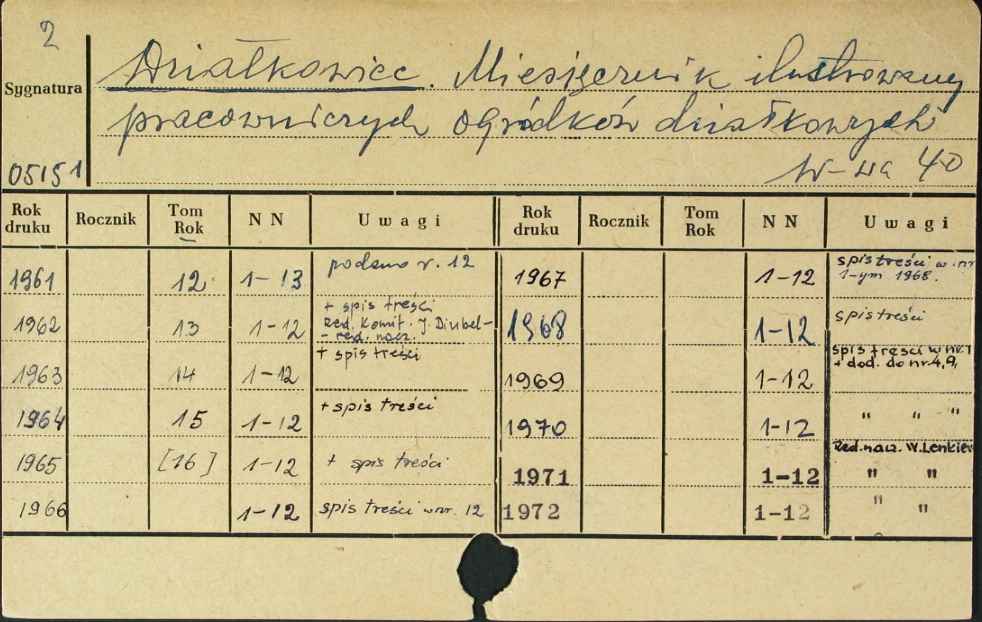 2
Działkowiec. Miesięcznik ilustrowany
Sygnatura
pracowniczych ogródków działkowych
05151
W-wa 40
Rok druku Rocznik Tom Rok N N Uwagi Rok druku Rocznik Tom Rok N N Uwagi
1961 12 1-13 podano r. 12 1967 1-12 spis treści w nr 1-ym 1968.
1962 13 1-12 + spis treści Red. Komit. J. - red. nacz. 1968 1-12 spis treści
1963 14 1-12 + spis treści 1969 1-12 spis treści w nr 1 + dod. do nr 4,9,
1964 15 1-12 + spis treści 1970 1-12 " " "
1965 [16] 1-12 + spis treści 1971 1-12 Red. nacz. W. Lenkiew " "
1966 1-12 spis treści w nr. 12 1972 1-12 " "